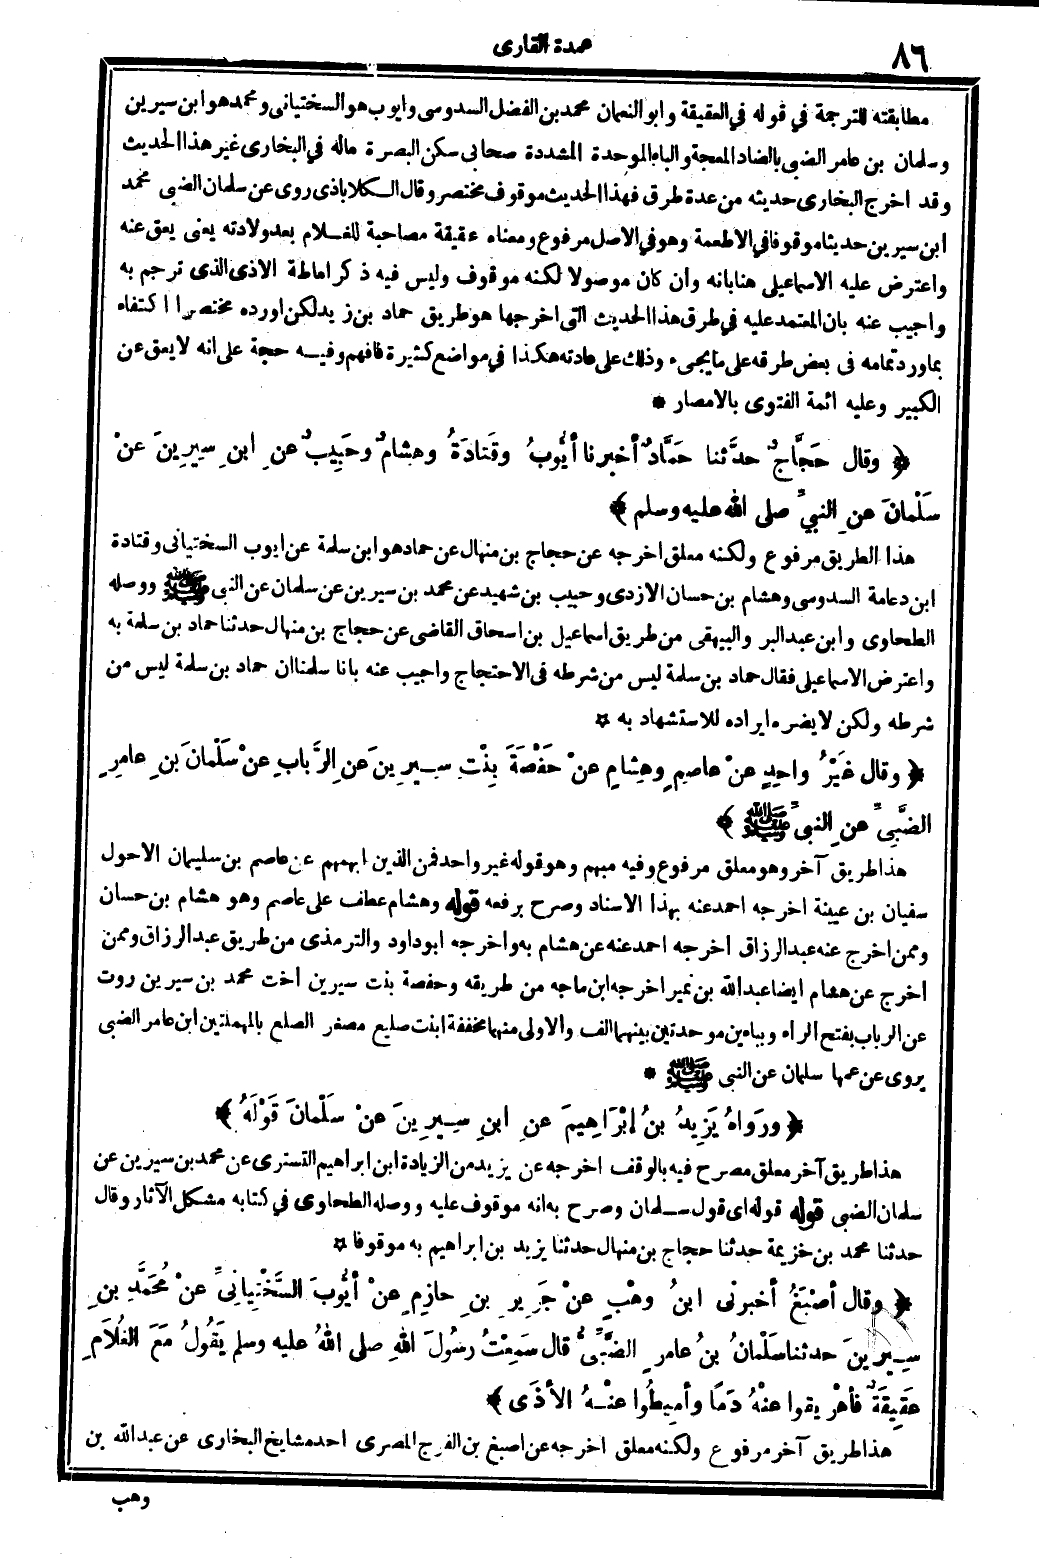 ٨٦
عمدة القارى
مطابقته للترجمة في قوله في العقيقة وابو النعمان محمد بن الفضل السدوسى وايوب هو السختيانى ومحمد هو ابن سيرين
وسلمان بن عامر الضبى بالضاد المعجمة والباء الموحدة المشددة صحابى سكن البصرة ماله في البخارى غير هذا الحديث
وقد اخرج البخارى حديثه من عدة طرق فهذا الحديث موقوف مختصر وقال الكلاباذى روى عن سلمان الضبى محمد
ابن سيرين حديثا موقوفا في الاطعمة وهو في الاصل مرفوع ومعناه عقيقة مصاحبة للغلام بعد ولادته يعنى يعق عنه
واعترض عليه الاسماعيلى هنا بانه وان كان موصولا لكنه موقوف وليس فيه ذكر اماطة الاذى الذى ترجم به
واجيب عنه بان المعتمد عليه في طرق هذا الحديث التى اخرجها هو طريق حماد بن زيد لكن اورده مختصرا اكتفاء
بما ورد تمامه فى بعض طرقه على ما يجىء وذلك على عادته هكذا في مواضع كثيرة فافهم وفيه حجة على انه لا يعق عن
الكبير وعليه ائمة الفتوى بالامصار *
﴿ وقال حَجَّاجٌ حدَّثنا حَمَّادٌ أخبرنا أيُّوبُ وقَتادَةُ وهِشامٌ وحَبِيبٌ عنِ ابنِ سِيرِينَ عنْ
سَلْمانَ عنِ النبيِّ صلى الله عليه وسلم ﴾
هذا الطريق مرفوع ولكنه معلق اخرجه عن حجاج بن منهال عن حماد هو ابن سلمة عن ايوب السختيانى وقتادة
ابن دعامة السدوسى وهشام بن حسان الازدى وحبيب بن شهيد عن محمد بن سيرين عن سلمان عن النبى ﷺ ووصله
الطحاوى وابن عبد البر والبيهقى من طريق اسماعيل بن اسحاق القاضى عن حجاج بن منهال حدثنا حماد بن سلمة به
واعترض الاسماعيلى فقال حماد بن سلمة ليس من شرطه فى الاحتجاج واجيب عنه بانا سلمنا ان حماد بن سلمة ليس من
شرطه ولكن لا يضره ايراده للاستشهاد به ☆
﴿ وقال غَيْرُ واحِدٍ عنْ عاصِمٍ وهِشامٍ عنْ حَفْصَةَ بِنْتِ سِيرِينَ عَنِ الرَّبابِ عنْ سَلْمانَ بنِ عامِرٍ
الضَّبِّيِّ عنِ النبيِّ ﷺ ﴾
هذا طريق آخر وهو معلق مرفوع وفيه مبهم وهو قوله غير واحد فمن الذين ابهمهم عن عاصم بن سليمان الاحول
سفيان بن عيينة اخرجه احمد عنه بهذا الاسناد وصرح برفعه قوله وهشام عطف على عاصم وهو هشام بن حسان
وممن اخرج عنه عبد الرزاق اخرجه احمد عنه عن هشام به واخرجه ابو داود والترمذى من طريق عبد الرزاق وممن
اخرج عن هشام ايضا عبد الله بن نمير اخرجه ابن ماجه من طريقه وحفصة بنت سيرين اخت محمد بن سيرين روت
عن الرباب بفتح الراء وبباءين موحدتين بينهما الف والاولى منهما مخففة ابنت صليع مصغر الصلع بالمهملتين ابن عامر الضبى
يروى عن عمها سلمان عن النبى ﷺ *
﴿ ورَواهُ يَزِيدُ بنُ إبْرَاهِيمَ عنِ ابنِ سِيرِينَ عنْ سَلْمانَ قَوْلَهُ ﴾
هذا طريق آخر معلق مصرح فيه بالوقف اخرجه عن يزيد من الزيادة ابن ابراهيم التسترى عن محمد بن سيرين عن
سلمان الضبى قوله قوله اى قول سلمان وصرح به انه موقوف عليه ووصله الطحاوى في كتابه مشكل الآثار وقال
حدثنا محمد بن خزيمة حدثنا حجاج بن منهال حدثنا يزيد بن ابراهيم به موقوفا ☆
﴿ وقال أصْبَغُ أخبرنى ابنُ وهْبٍ عنْ جَرِيرِ بنِ حازِمٍ عنْ أيُّوبَ السَّخْتِيانِيِّ عنْ مُحَمَّدِ بنِ
سِيرِينَ حدثنا سَلْمانُ بنُ عامرٍ الضَّبِّيُّ قال سَمِعْتُ رسُولَ اللهِ صلى اللهُ عليه وسلم يَقُولُ مَعَ الغُلاَمِ
عَقِيقَةٌ فأهْرِيقوا عنْهُ دَمًا وأمِيطُوا عنْهُ الأذَى ﴾
هذا طريق آخر مرفوع ولكنه معلق اخرجه عن اصبغ بن الفرج المصرى احد مشايخ البخارى عن عبد الله بن
وهب